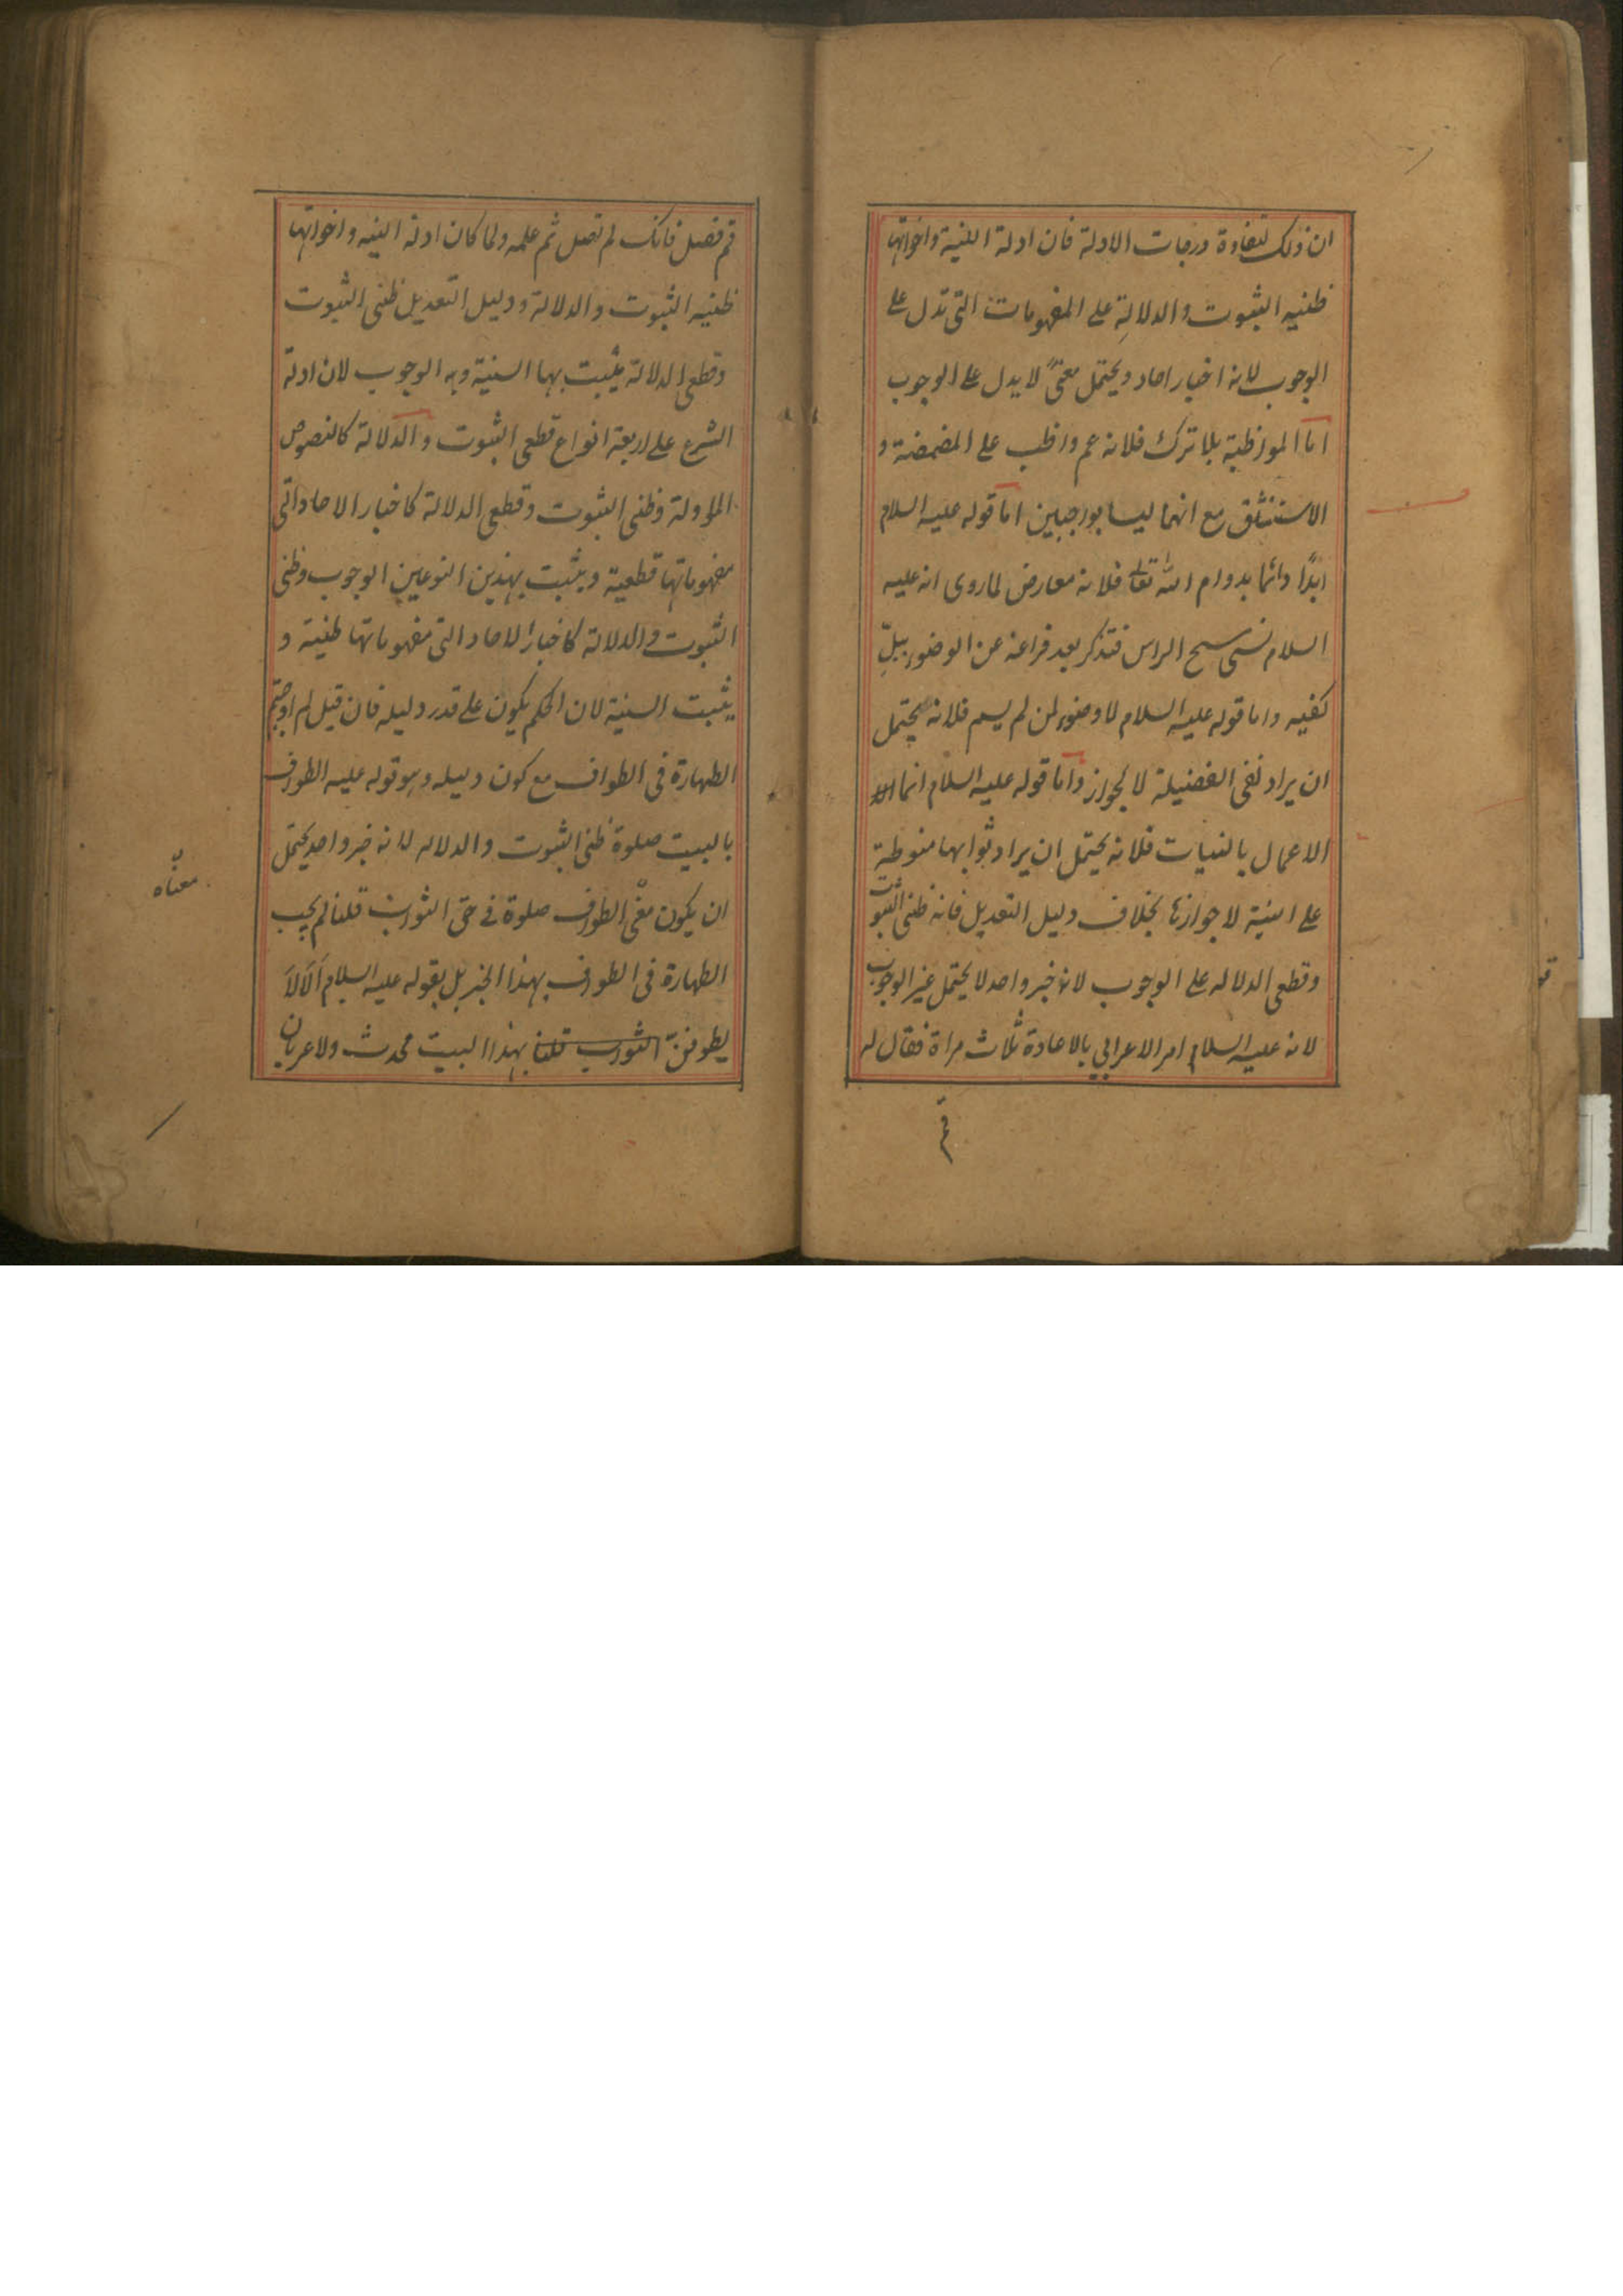 ان ذلك لتفاوة درجات الادلة فان ادلة النية واخواتها
ظنيه الثبوت والدلالةِ على المفهومات التى تدل على
الوجوب لانه اخبار احاد ويحتمل معنىً لا يدل على الوجوب
اما المواظبة بلا ترك فلانه عم واظب على المضمضة و
الاستنشق مع انهما ليسا بواجبين اما قوله عليه السلام
ابدًا دائما بدوام الله تعالى فلانه معارض لما روى انه عليه
السلام نسى مسح الراس فتذكر بعد فراغه عن الوضوء ببلِّ
كفيه واما قوله عليه السلام لا وضوء لمن لم يسم فلانه يحتمل
ان يراد نفى الفضيلة لا لجواز واما قوله عليه السلام انما
الاعمال بالنيات فلانه يحتمل ان يراد ثوابها منوطة
على النية لا جوازها بخلاف دليل التعديل فانه ظنى الثبوت
وقطعى الدلاله على الوجوب لانه خبر واحد لا يحتمل غير الوجوب
لانه عليه السلام امر الاعرابي بالاعادة ثلاث مراة فقال له
قم
قم فصل فانك لم تصل ثم علمه ولما كان ادلة النيه واخواتها
ظنيه الثبوت والدلالة ودليل التعديل ظنى الثبوت
وقطعى الدلالة يثبت بها السنية وبه الوجوب لان ادلة
الشرع على اربعة انواع قطعى الثبوت والدلالة كالنصوص
الماولة وظنى الثبوت وقطعى الدلالة كاخبار الاحاد التى
مفهوماتها قطعية ويثبت بهذين النوعين الوجوب وظنى
الثبوت والدلالة كاخبار الاحاد التى مفهوماتها ظنية و
يثبت السنية لان الحكم يكون على قدر دليله فان قيل لم اوجبتم
الطهارة فى الطواف مع كون دليله وهو قوله عليه الطواف
بالبيت صلوة ظنى الثبوت والدلاله لانه خبر واحد يحتمل
ان يكون معنى الطواف صلوة فى حق الثواب قلنا لم يجب
الطهارة فى الطواف بهذا الخبر بل بقوله عليه السلام اَلَا لاَ
يطوفنّ الثواب قلنا بهذا البيت محدث ولا عريان
معناه